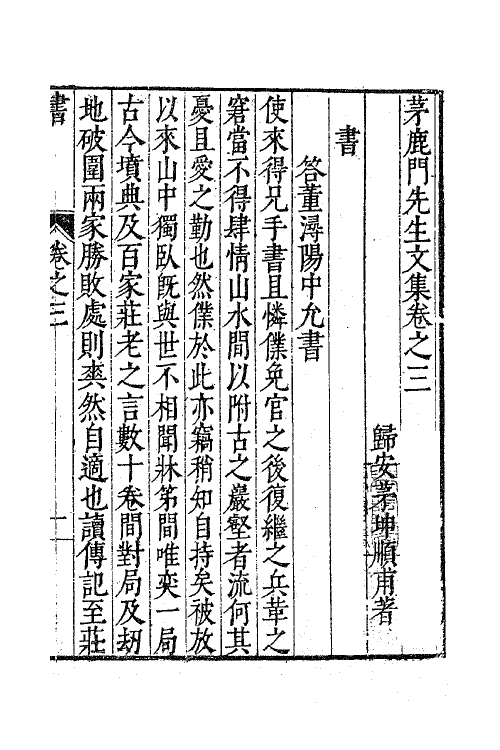 茅鹿門先生文集卷之三
歸安茅坤順甫著
書
答董潯陽中允書
使來得兄手書且憐僕免官之後復繼之兵革之
窘當不得肆情山水間以附古之巖壑者流何其
憂且愛之勤也然僕於此亦竊稍知自持矣被放
以來山中獨臥旣與世不相聞牀笫間唯奕一局
古今墳典及百家莊老之言數十卷間對局及刼
地破圍兩家勝敗處則爽然自適也讀傳記至莊
書 卷之三 一